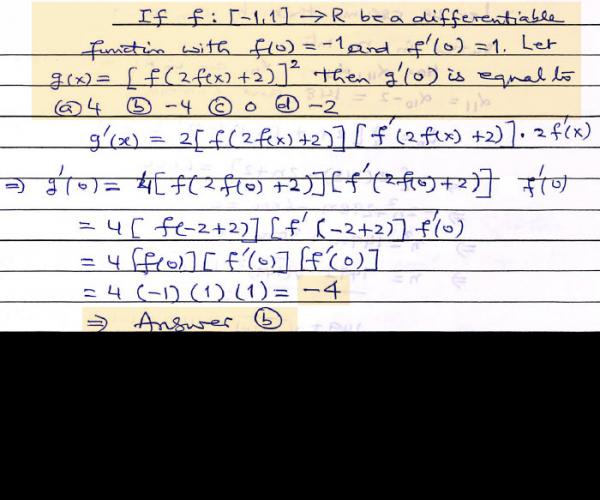 If f : [-1,1] → R be a differentiable
function with f(0) = -1 and f'(0) = 1. Let
g(x) = [f(2f(x)+2)]² then g'(0) is equal to
ⓐ 4 ⓑ -4 ⓒ 0 ⓓ -2
g'(x) = 2[f(2f(x)+2)][f'(2f(x)+2)]·2f'(x)
⇒ g'(0) = 4[f(2f(0)+2)][f'(2f(0)+2)] f'(0)
= 4[f(-2+2)][f'(-2+2)] f'(0)
= 4[f(0)][f'(0)][f'(0)]
= 4(-1)(1)(1) = -4
⇒ Answer ⓑ